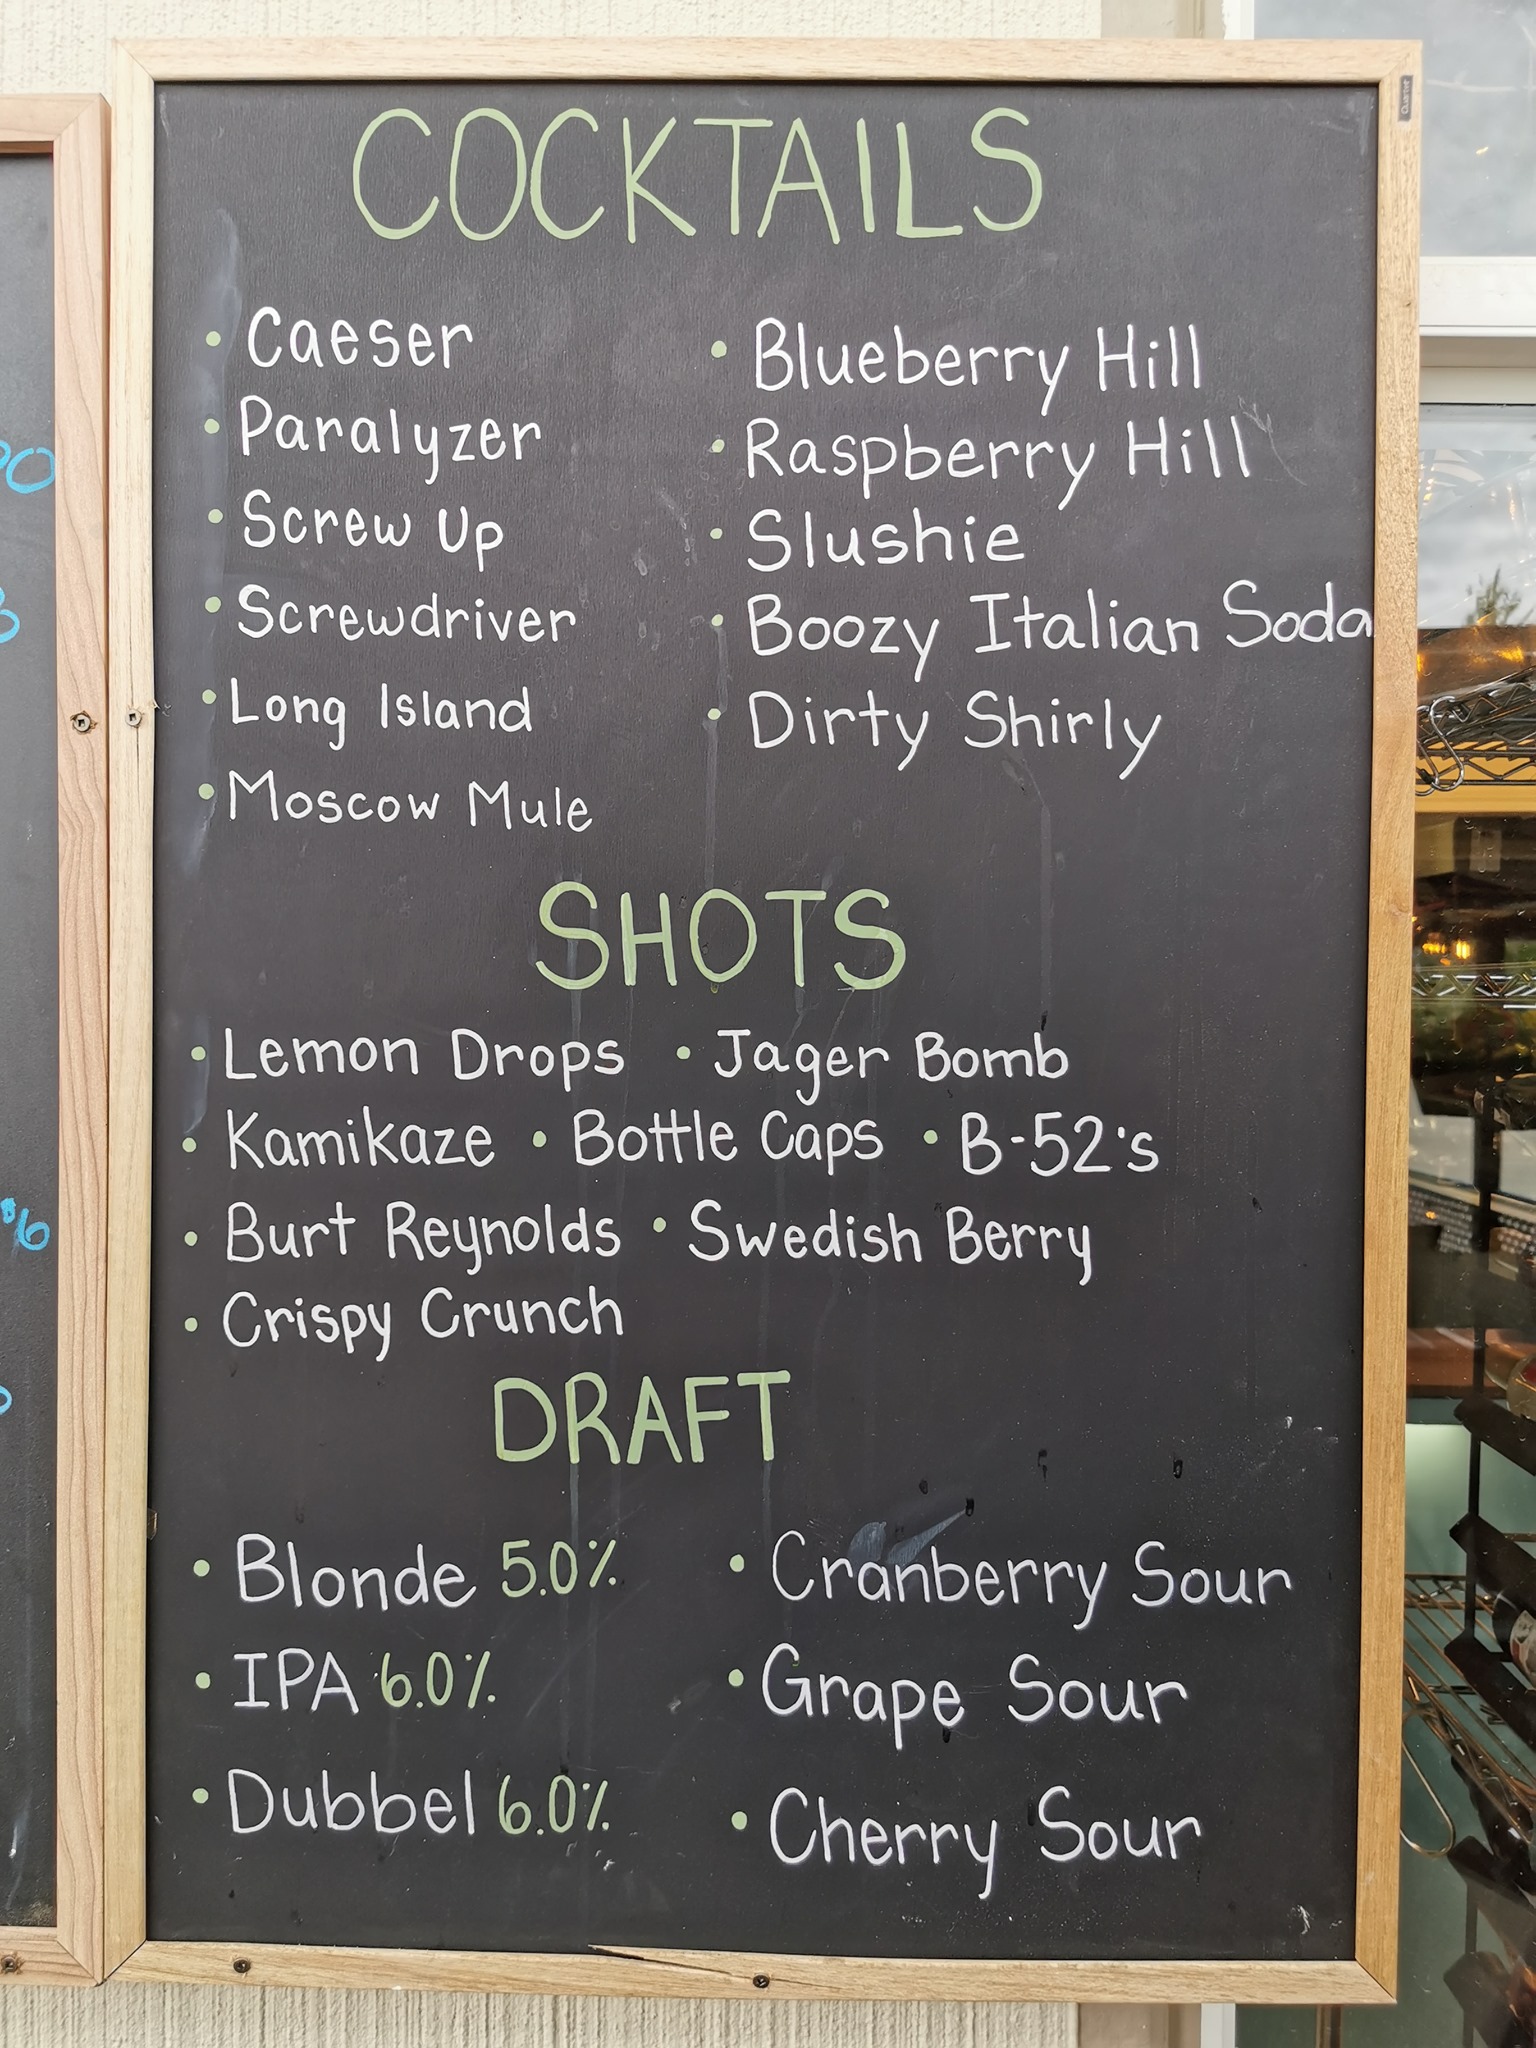 COCKTAILS
• Caeser
• Paralyzer
• Screw Up
• Screwdriver
• Long Island
• Moscow Mule
• Blueberry Hill
• Raspberry Hill
• Slushie
• Boozy Italian Soda
• Dirty Shirly
SHOTS
• Lemon Drops • Jager Bomb
• Kamikaze • Bottle Caps • B-52's
• Burt Reynolds • Swedish Berry
• Crispy Crunch
DRAFT
• Blonde 5.0%
• IPA 6.0%
• Dubbel 6.0%
• Cranberry Sour
• Grape Sour
• Cherry Sour
Quartet